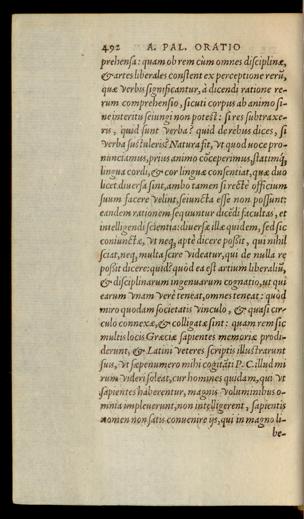 492 A. PAL. ORATIO
prehensa: quam ob rem cùm omnes disciplinæ,
& artes liberales constent ex perceptione rerū,
quæ verbis significantur, à dicendi ratione re-
rum comprehensio, sicuti corpus ab animo si-
ne interitu seiungi non potest: si res subtraxe-
ris, quid sunt verba? quid de rebus dices, si
verba sustuleris? Natura fit, vt quod uoce pro-
nunciamus, prius animo cōceperimus, statimq́;
lingua cordi, & cor linguæ consentiat, quæ duo
licet diuersa sint, ambo tamen si rectè officium
suum facere velint, seiuncta esse non possunt:
eandem rationem sequuntur dicēdi facultas, et
intelligendi scientia: diuersæ illæ quidem, sed sic
coniunctæ, vt neq, aptè dicere possit, qui nihil
sciat, neq, multa scire videatur, qui de nulla re
possit dicere: quid? quòd ea est artium liberaliū,
& disciplinarum ingenuarum cognatio, ut qui
earum vnam verè teneat, omnes teneat: quòd
miro quodam societatis vinculo, & quasi cir-
culo connexæ, & colligatæ sint: quam rem sic
multis locis Græciæ sapientes memoriæ prodi-
derunt, & Latini veteres scriptis illustrarunt
suis, vt sæpenumero mihi cogitāti P. C. illud mi
rum videri soleat, cur homines quidam, qui vt
sapientes haberentur, magnis voluminibus o-
mnia impleuerunt, non intelligerent, sapientis
nomen non satis conuenire ijs, qui in magno li-
be-